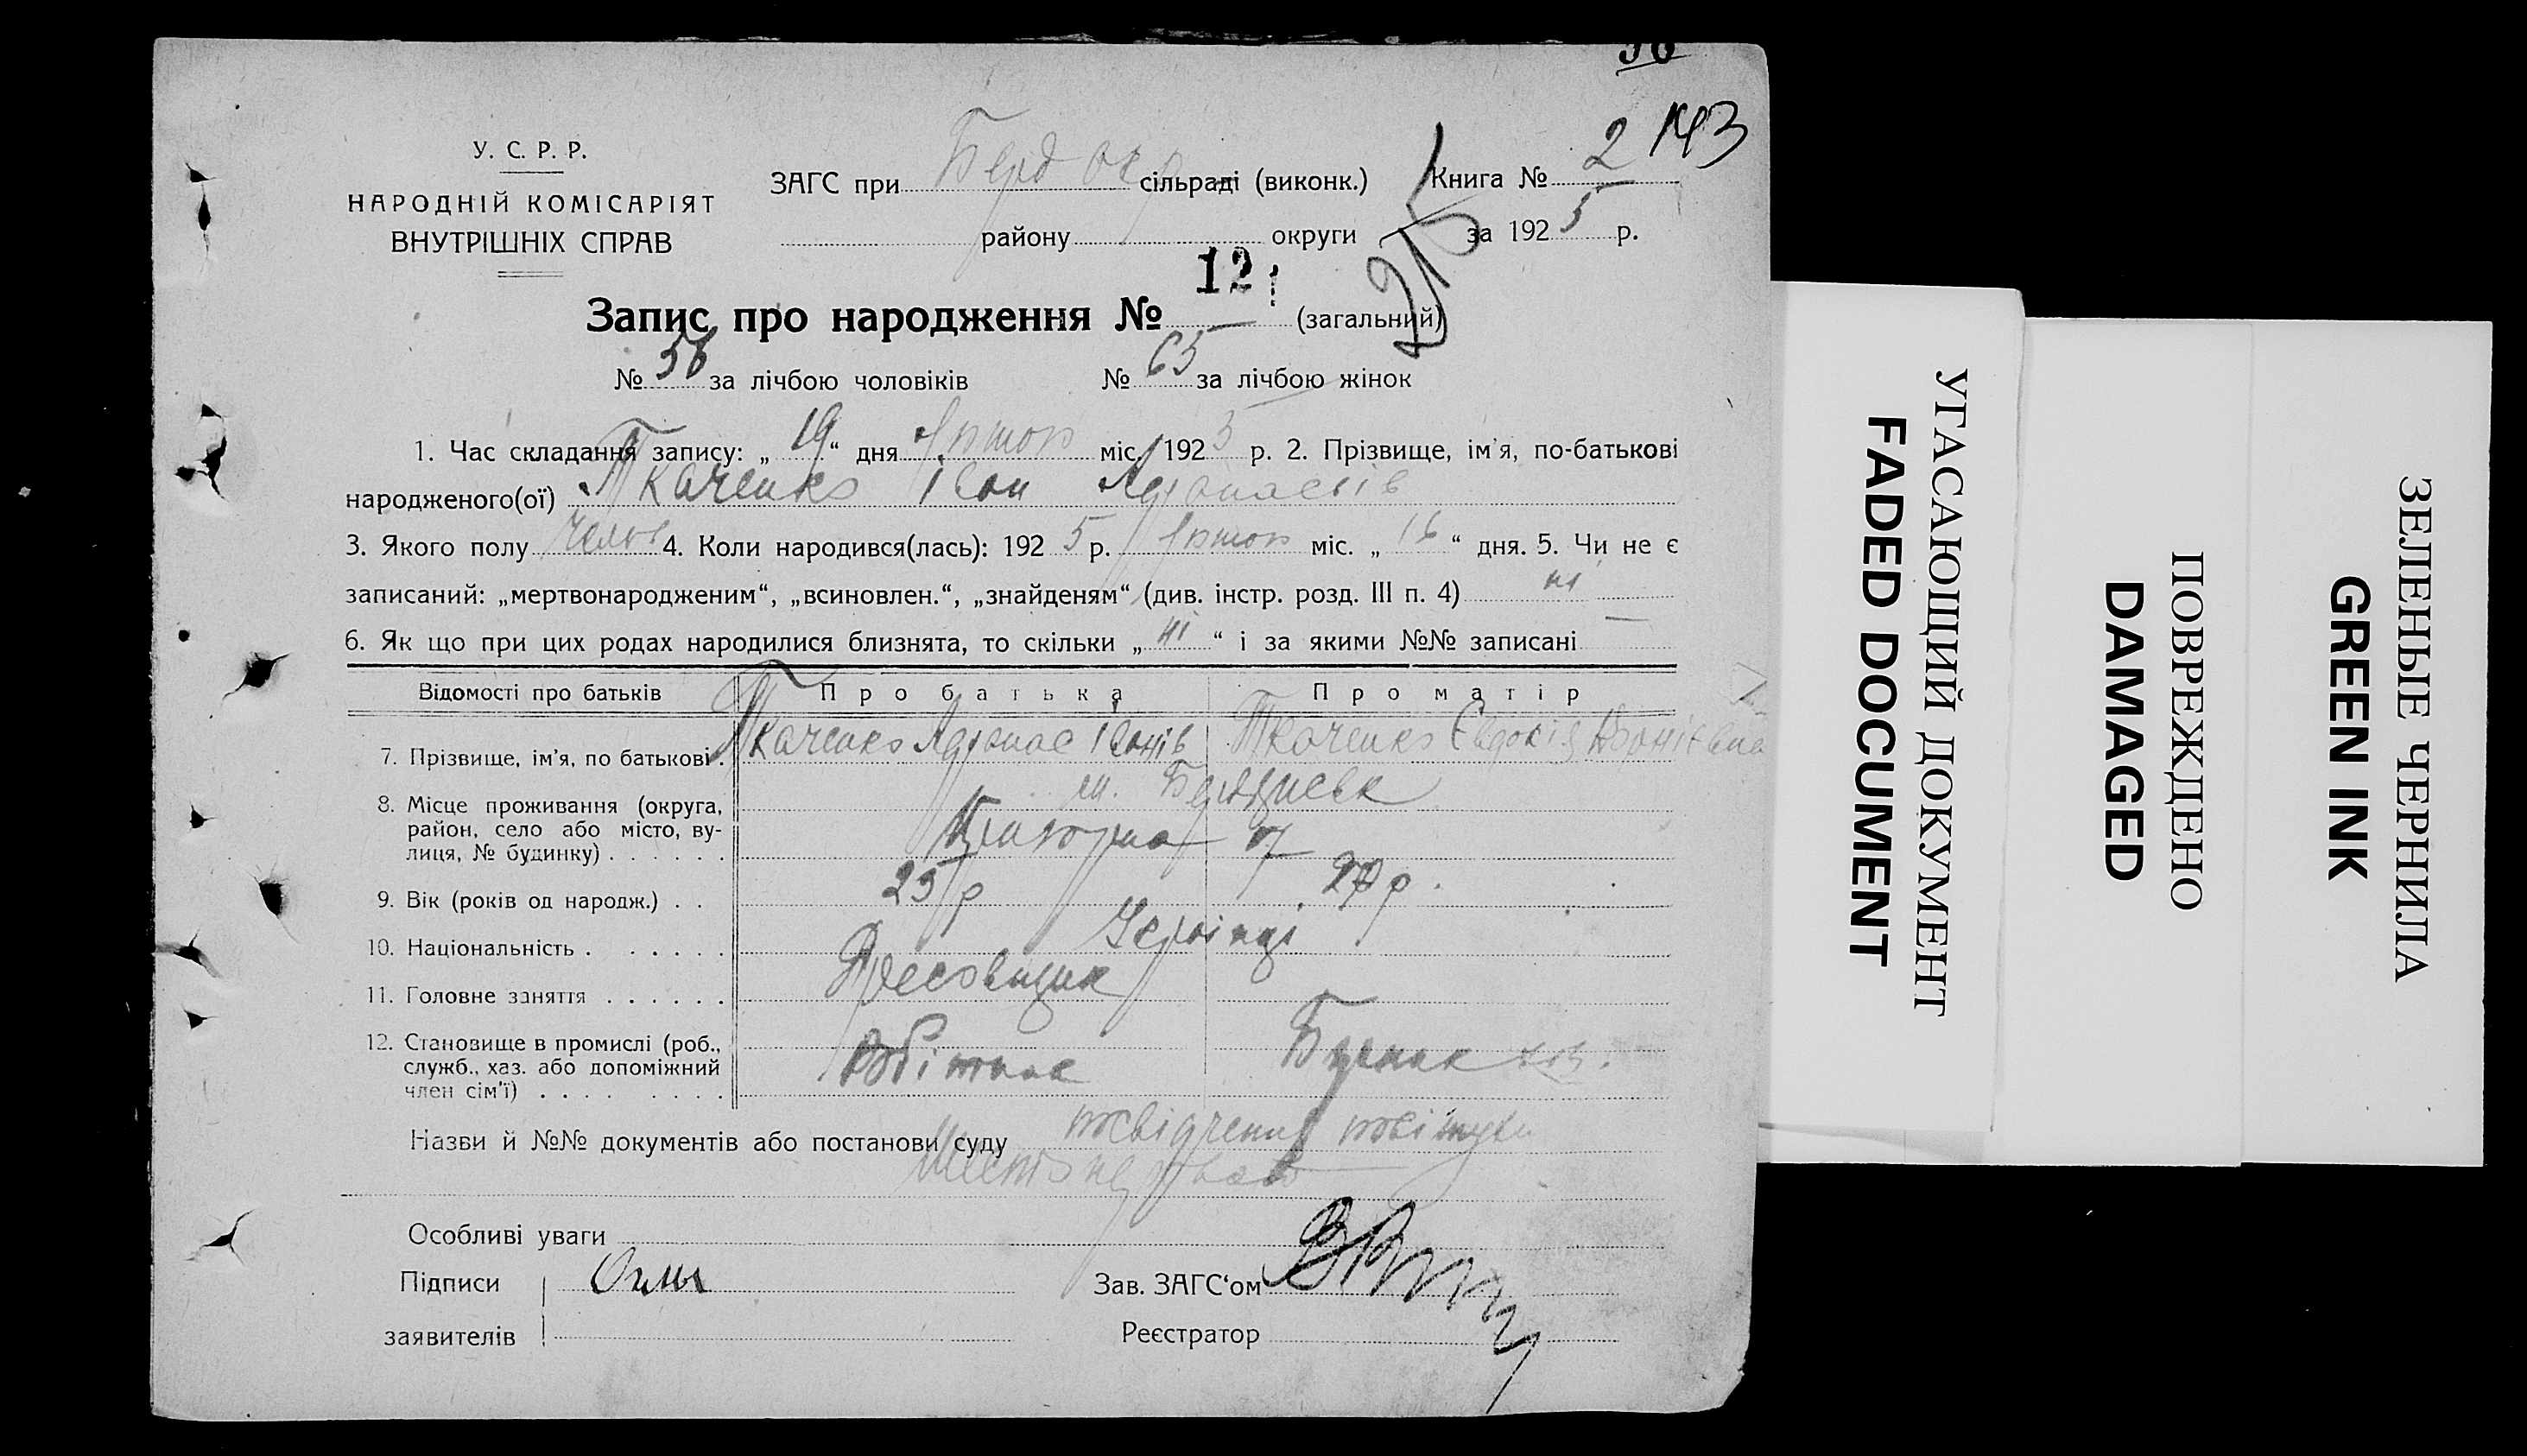 У. С. Р. Р.
НАРОДНІЙ КОМІСАРІЯТ
ВНУТРІШНІХ СПРАВ
ЗАГС при Берд окр сільраді (виконк.)
району округи
Книга № 2 143
за 1925 р.
215
Запис про народження № 121 (загальний)
№ 56 за лічбою чоловіків № 65 за лічбою жінок
1. Час складання запису: „ 19 “ дня міс. 1925 р. 2. Прізвище, ім'я, по-батькові
народженого(ої) Ткаченко Іван Афанасьів
3. Якого полу 4. Коли народився(лась): 1925 р. міс. „ 16 “ дня. 5. Чи не є
записаний: „мертвонародженим“, „всиновлен.“, „знайденям“ (див. інстр. розд. III п. 4) ні
6. Як що при цих родах народилися близнята, то скільки „ ні “ і за якими №№ записані —
Відомості про батьків Про батька Про матір
7. Прізвище, ім'я, по батькові . Ткаченко Афанас Іванів Ткаченко Євдокія
8. Місце проживання (округа,
район, село або місто, ву-
лиця, № будинку) . . . . . .
м. Бердянськ
9. Вік (років од народж.) . . 25 р р.
10. Національність . . . . . . Українці
11. Головне заняття . . . . . .
12. Становище в промислі (роб.,
служб., хаз. або допоміжний
член сім'ї) . . . . . . . .
Робітник
Назви й №№ документів або постанови суду посвідчення
Особливі уваги
Підписи
заявителів
Зав. ЗАГС‘ом
Реєстратор
УГАСАЮЩИЙ ДОКУМЕНТ
FADED DOCUMENT
ПОВРЕЖДЕНО
DAMAGED
ЗЕЛЕНЫЕ ЧЕРНИЛА
GREEN INK